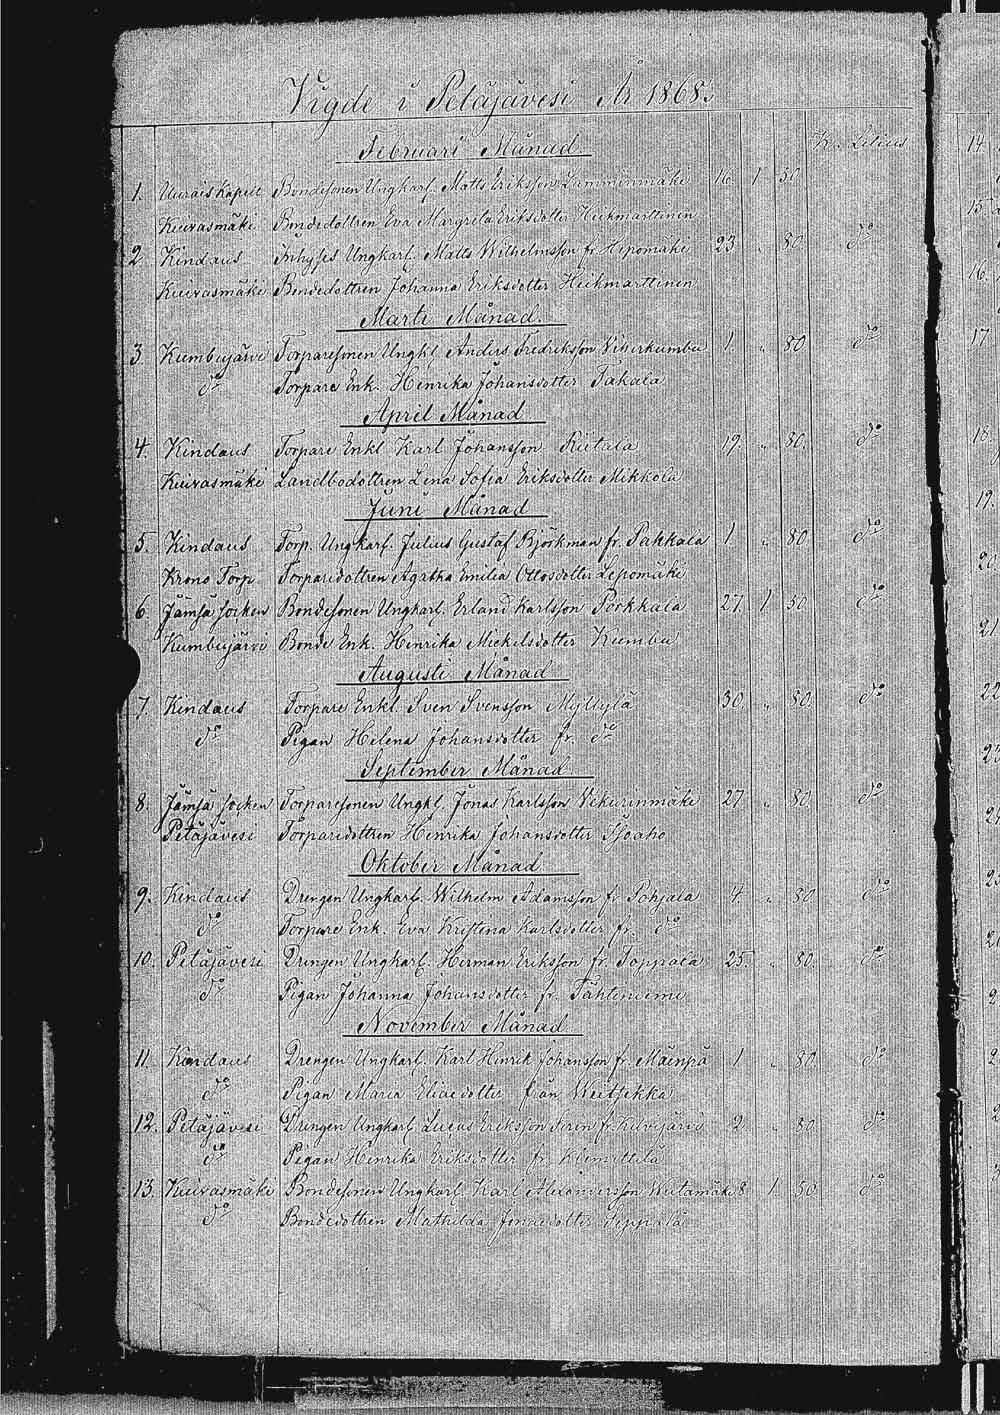 Vigde i Petäjävesi År 1868.
Februari Månad K. Lilius
1. Uurais Kapell Bondesonen Ungkarl. Matts Eriksson Lumminmäki 16. 1 50
Kuivasmäki Bondedottren Eva Margreta Eriksdotter Heikmarttinen
2. Kindaus Inhyses Ungkarl. Matts Wilhelmsson fr. Hepomäki 23 " 80 do
Kuivasmäki Bondedottren Johanna Eriksdotter Heikmarttinen
Marti Månad.
3. Kumbujärvi Torparesonen Ungkl. Anders Fredriksson 1. " 80 do
do Torpare Enk. Henrika Johansdotter Takala
April Månad
4. Kindaus Torpare Enkl Karl Johansson Riitala 19. " 80. do
Kuivasmäki Landbodottren Lena Sofia Eriksdotter Mikkola
Juni Månad
5. Kindaus Torp. Ungkarl. Julius Gustaf Björkman fr. Pahkala 1. " 80 do
Krono Torp Torparedottren Agatha Emilia Ottosdotter Lepomäki
6. Jämsä socken Bondesonen Ungkarl. Erland Karlsson Porkkala 27. 1. 50 do
Kumbujärvi Bonde Enk. Henrika Mickelsdotter Kumbu
Augusti Månad
7. Kindaus Torpare Enkl. Sven Svensson Myllylä 30. " 80. do
do Pigan Helena Johansdotter fr. do
September Månad.
8. Jämsä socken Torparesonen Ungkl. Jonas Karlsson Wekurinmäki 27 " 80. do
Petäjävesi Torparedottren Henrika Johansdotter Isoaho
Oktober Månad
9. Kindaus Drengen Ungkarl. Wilhelm Adamsson fr Pohjala 4. " 80 do
do Torpare Enk. Eva Kristina Karlsdotter fr. do
10. Petäjävesi Drengen Ungkarl. Herman Eriksson fr. Toppala 25. " 80. do
do Pigan Johanna Johansdotter fr. Tähtiniemi
November Månad
11. Kindaus Drengen Ungkarl. Karl Henrik Johansson fr. Mäenpä 1 " 80. do
do Pigan Maria Eliaedotter från
12. Petäjävesi Drengen Ungkarl Lucas Eriksson fr. 2. " 80 do
do Pigan Henrika Eriksdotter fr. Kiemittilä
13. Kuivasmäki Bondesonen Ungkarl. Karl Alexandersson Wiitamäki 8 1. 50 do
do Bondedottren Mathilda Jonaedotter Seppälä
14.
15.
16.
17
18.
19.
20.
21
22
23
24
25